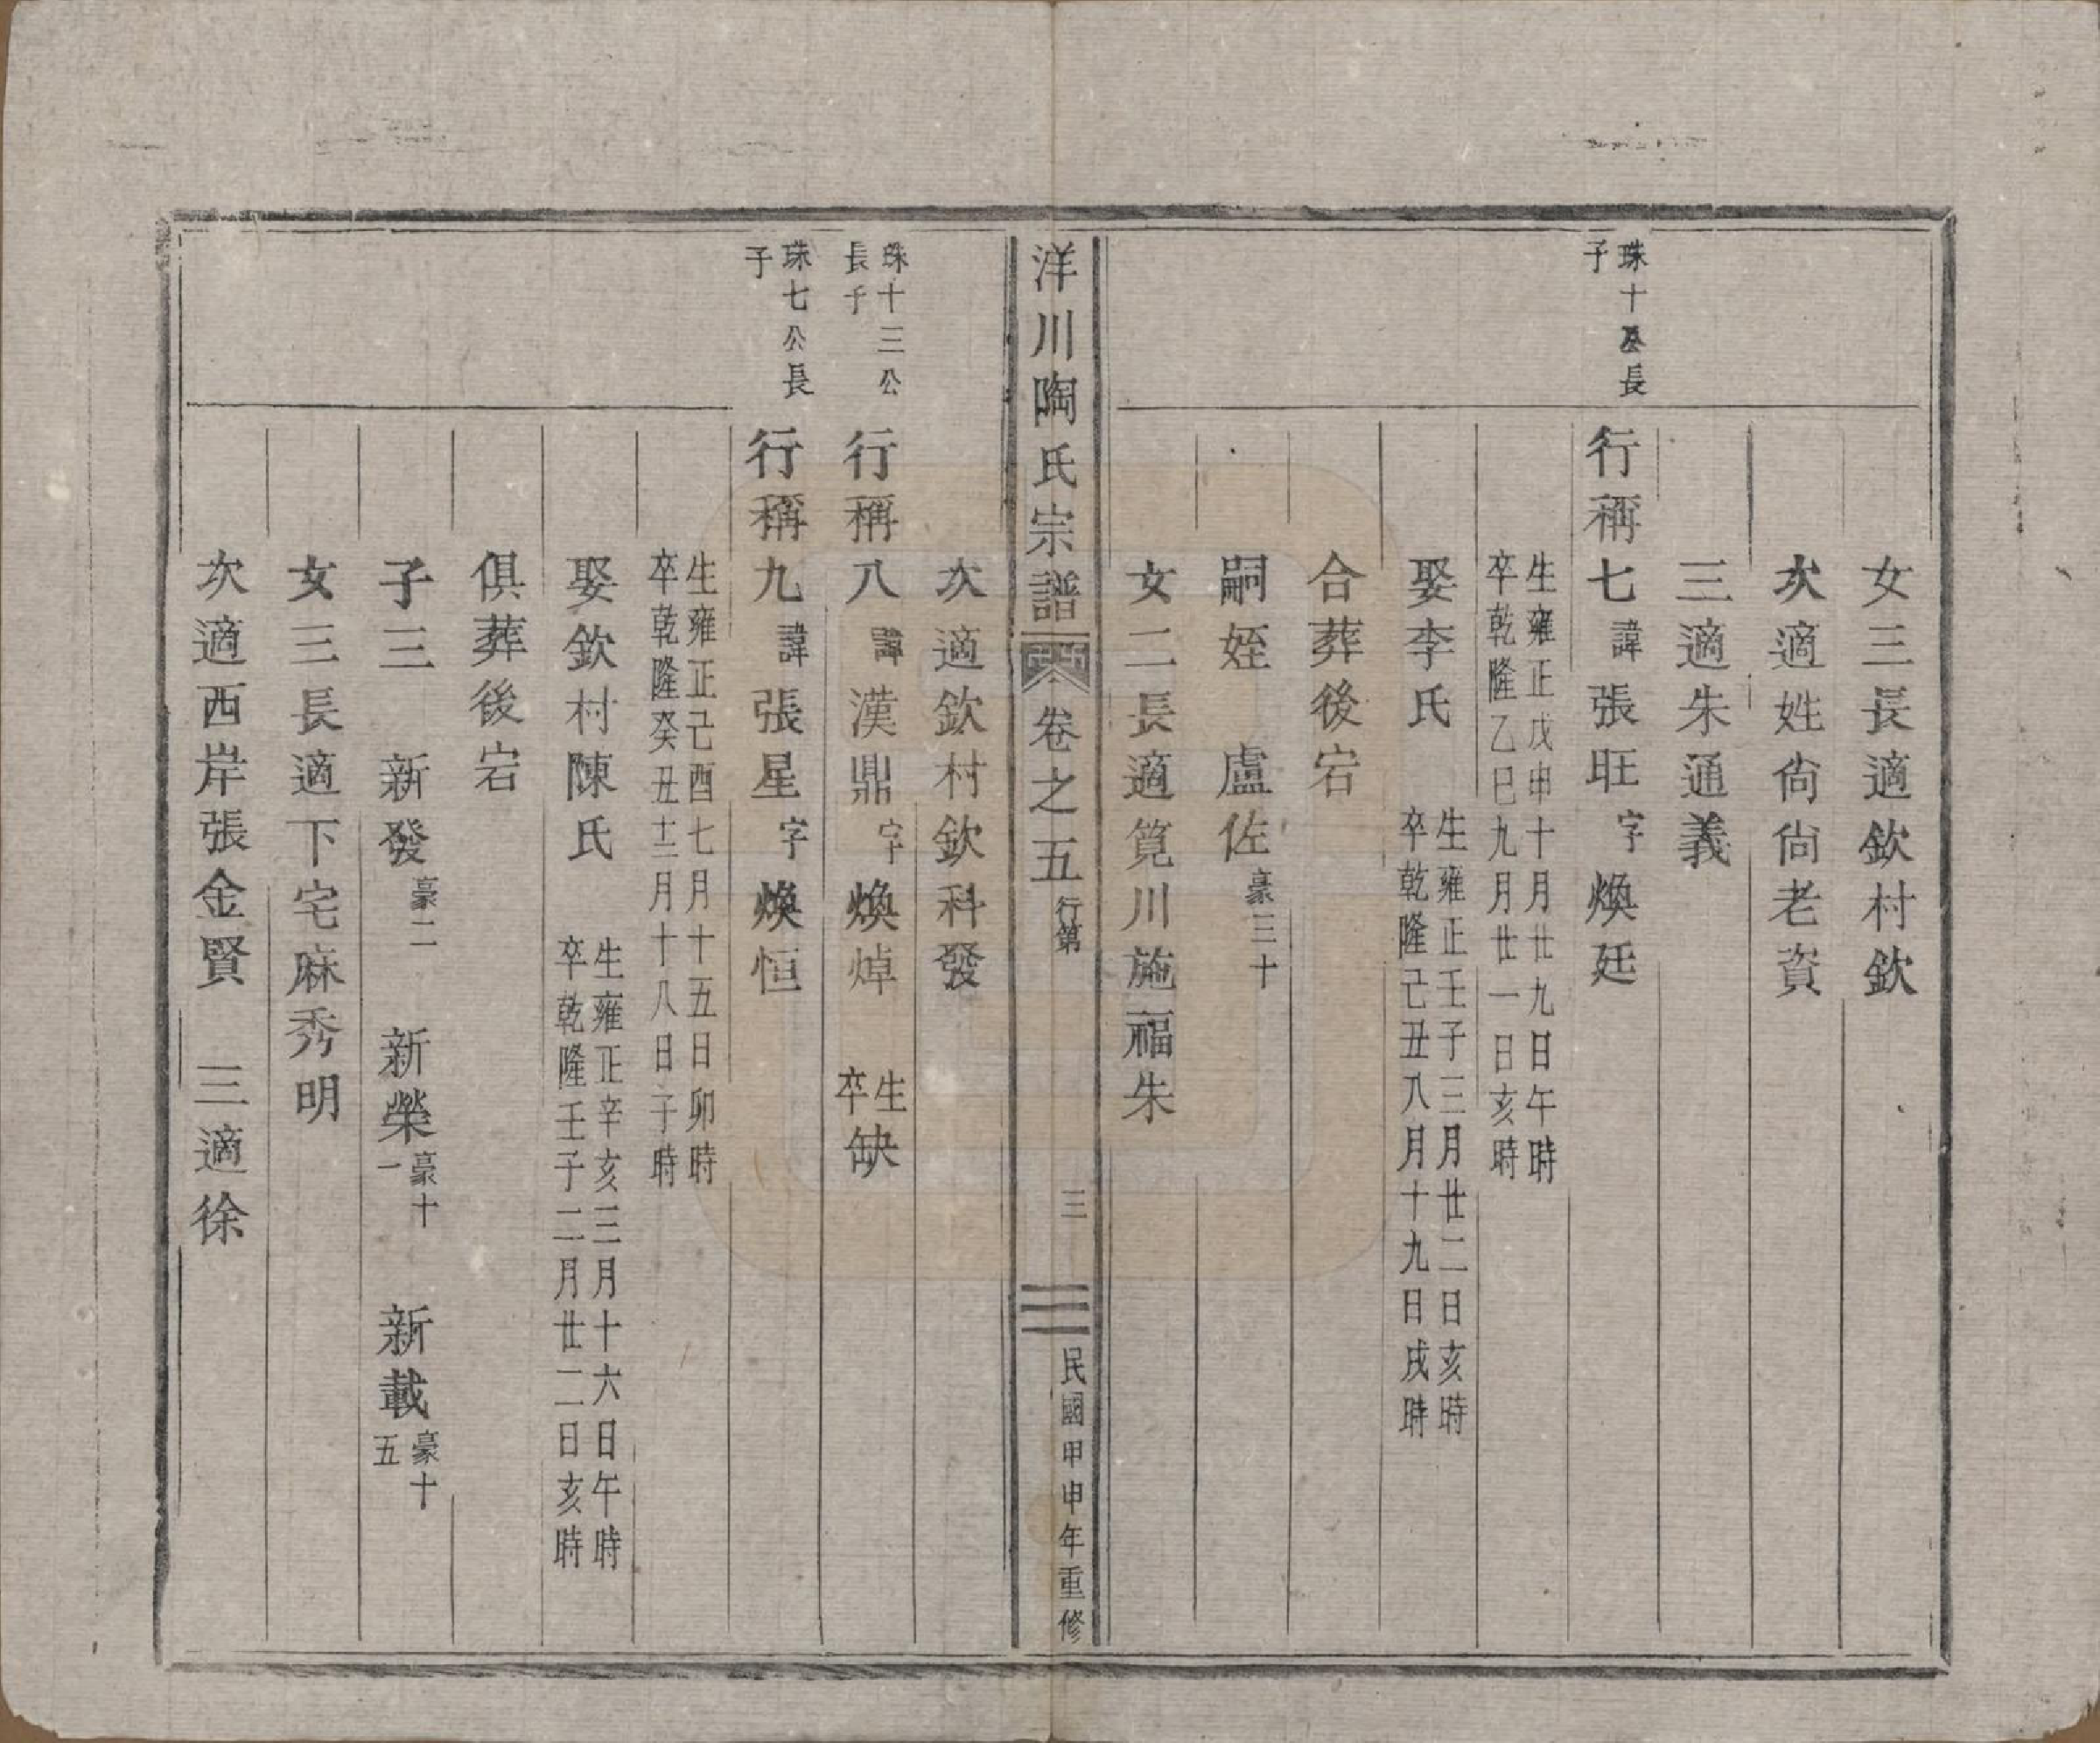 女三長適欽村欽
次適姓尙尙老資
三適朱通義
珠十公長
子
行稱七諱張旺字煥廷
生雍正戊申十月廿九日午時
卒乾隆乙巳九月廿一日亥時
娶李氏
生雍正壬子三月廿二日亥時
卒乾隆己丑八月十九日戌時
合葬後宕
嗣姪 盧佐豪三十
女二長適筧川施福朱
洋川陶氏宗譜 卷之五 行第 三 民國甲申年重修
次適欽村欽科發
珠十三公
長子
行稱八諱漢鼎字煥焯 生卒缺
珠七公長
子
行稱九諱張星字煥恒
生雍正己酉七月十五日卯時
卒乾隆癸丑十二月十八日子時
娶欽村陳氏
生雍正辛亥三月十六日午時
卒乾隆壬子二月廿二日亥時
俱葬後宕
子三 新發豪二 新榮豪十一 新載豪十五
女三長適下宅麻秀明
次適西岸張金賢 三適徐